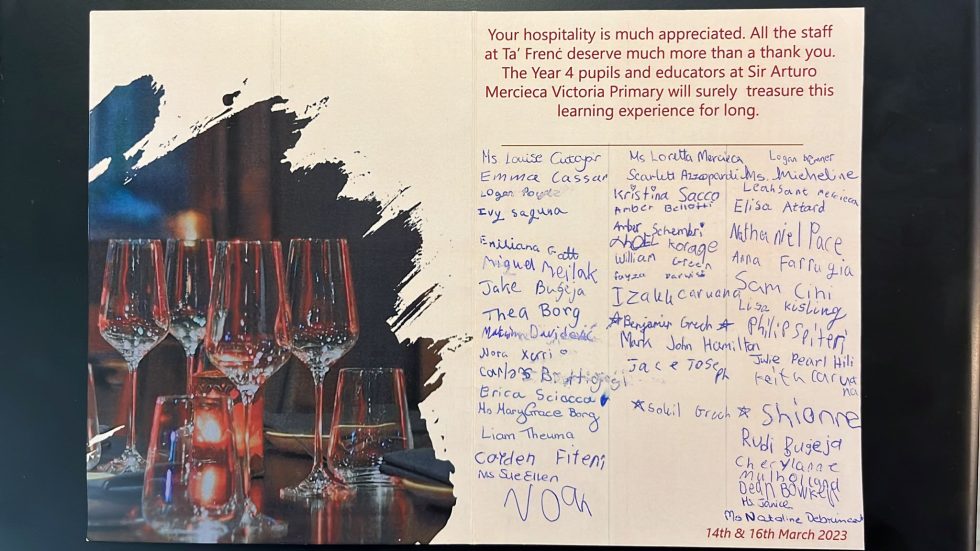 Your hospitality is much appreciated. All the staff
at Ta' Frenċ deserve much more than a thank you.
The Year 4 pupils and educators at Sir Arturo
Mercieca Victoria Primary will surely treasure this
learning experience for long.
Ms Louise
Emma Cassar
Logan
Ivy Saguna
Emiliana Gatt
Miguel Mejlak
Jake Bugeja
Thea Borg
Nora Xerri
Carlos
Erica Sciacca
Ms MaryGrace Borg
Liam Theuma
Cayden Fiteni
Ms Sue Ellen
Noah
Ms Loretta Mercieca
Scarlett Azzopardi
Kristina Sacco
Amber Bellotti
Amber Schembri
Korage
William Green
Fayza Darwish
Izakk Caruana
Benjamin Grech
Mark John Hamilton
Jace Joseph
Sokil Grech
Logan
Ms. Micheline
Leah Sant Mercieca
Elisa Attard
Nathaniel Pace
Anna Farrugia
Sam Cini
Lisa Kisling
Philip Spiteri
Julie Pearl Hili
Keith Caruana
Shianne
Rudi Bugeja
Cherylanne
Mulholland
Dean Bowker
Ms Janice
Ms Nataline Debrincat
14th & 16th March 2023